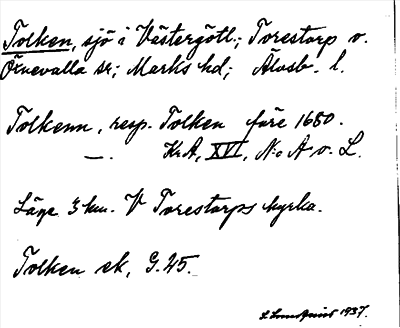 Tolken, sjö i Västergötl.; Torestorp o.
Öxnevalla sr; Marks hd; Älvsb. l.
Tolkenn, resp. Tolken före 1680.
—. KrA, XVI, N:o A o. L.
Läge 3 km. V Torestorps kyrka.
Tolken ek, G.45.
1937.